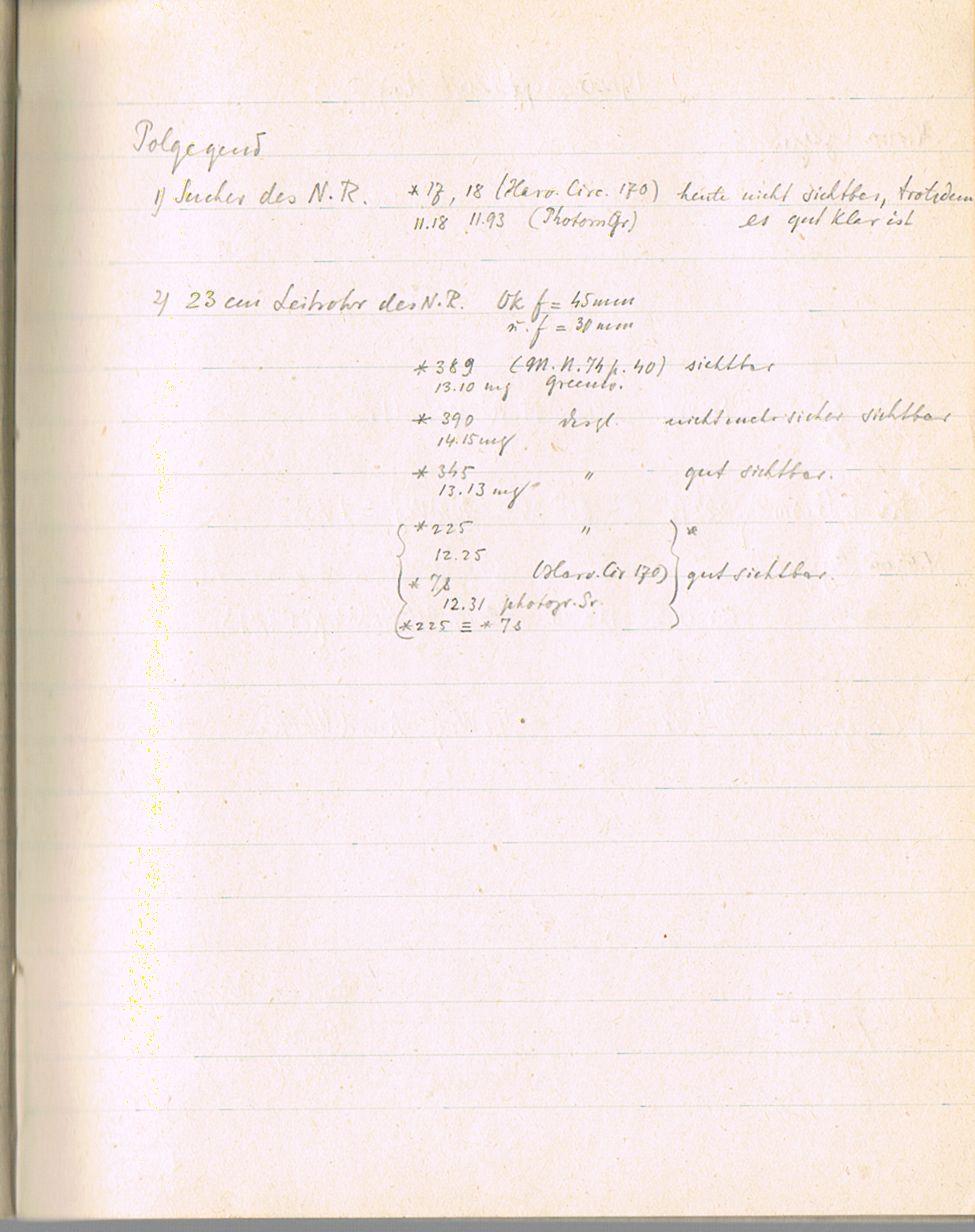 Polgegend
1) Sucher des N.R. *17, 18 (Harv. Circ. 170) heute nicht sichtbar, trotzdem
11.18 11.93 (Photom Gr) es gut klar ist
2) 23 cm Leitrohr des N.R. Ok f = 45 mm
u. f = 30 mm
*389 (M.N. 74 p. 40) sichtbar
13.10 mg Greenw.
*390 desgl. nicht mehr sicher sichtbar
14.15 mg
*345 " gut sichtbar.
13.13 mg
*225 " *
12.25
*7s (Harv. Cir 170) gut sichtbar.
12.31 photogr. Gr.
*225 ≡ *7s